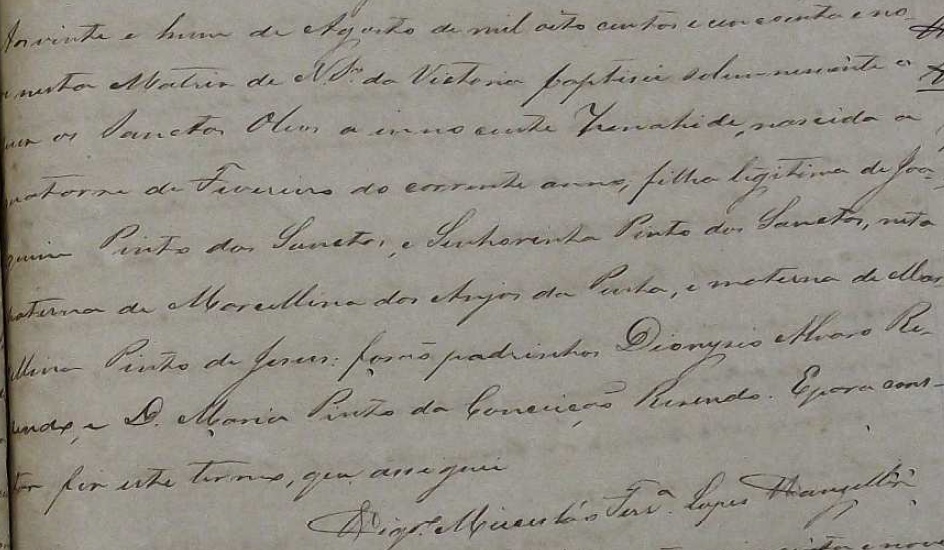 Aos vinte e hum de Agosto de mil oito centos e cincoenta e no-
nesta Matriz de N. Srª da Victoria baptisei solemnemente e
os Sanctos Oleos a innocente nascida a
quatorze de Fevereiro do corrente anno, filha legitima de Joa-
quim Pinto dos Sanctos, e Senhorinha Pinto dos Sanctos, neta
paterna de Marcellina dos Anjos da e materna de Mar-
cellina Pinto de Jesus: forão padrinhos Dionysio Alvaro Re-
zendo, e D. Maria Pinto da Conceição Resendo. E para cons-
tar fiz este termo, que assignei
Vigrº